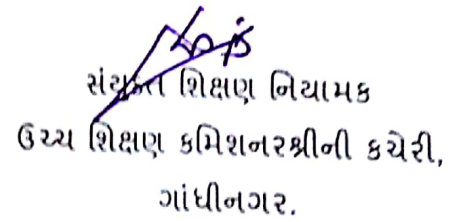 સંયુક્ત શિક્ષણ નિયામક
ઉચ્ચ શિક્ષણ કમિશનરશ્રીની કચેરી,
ગાંધીનગર.